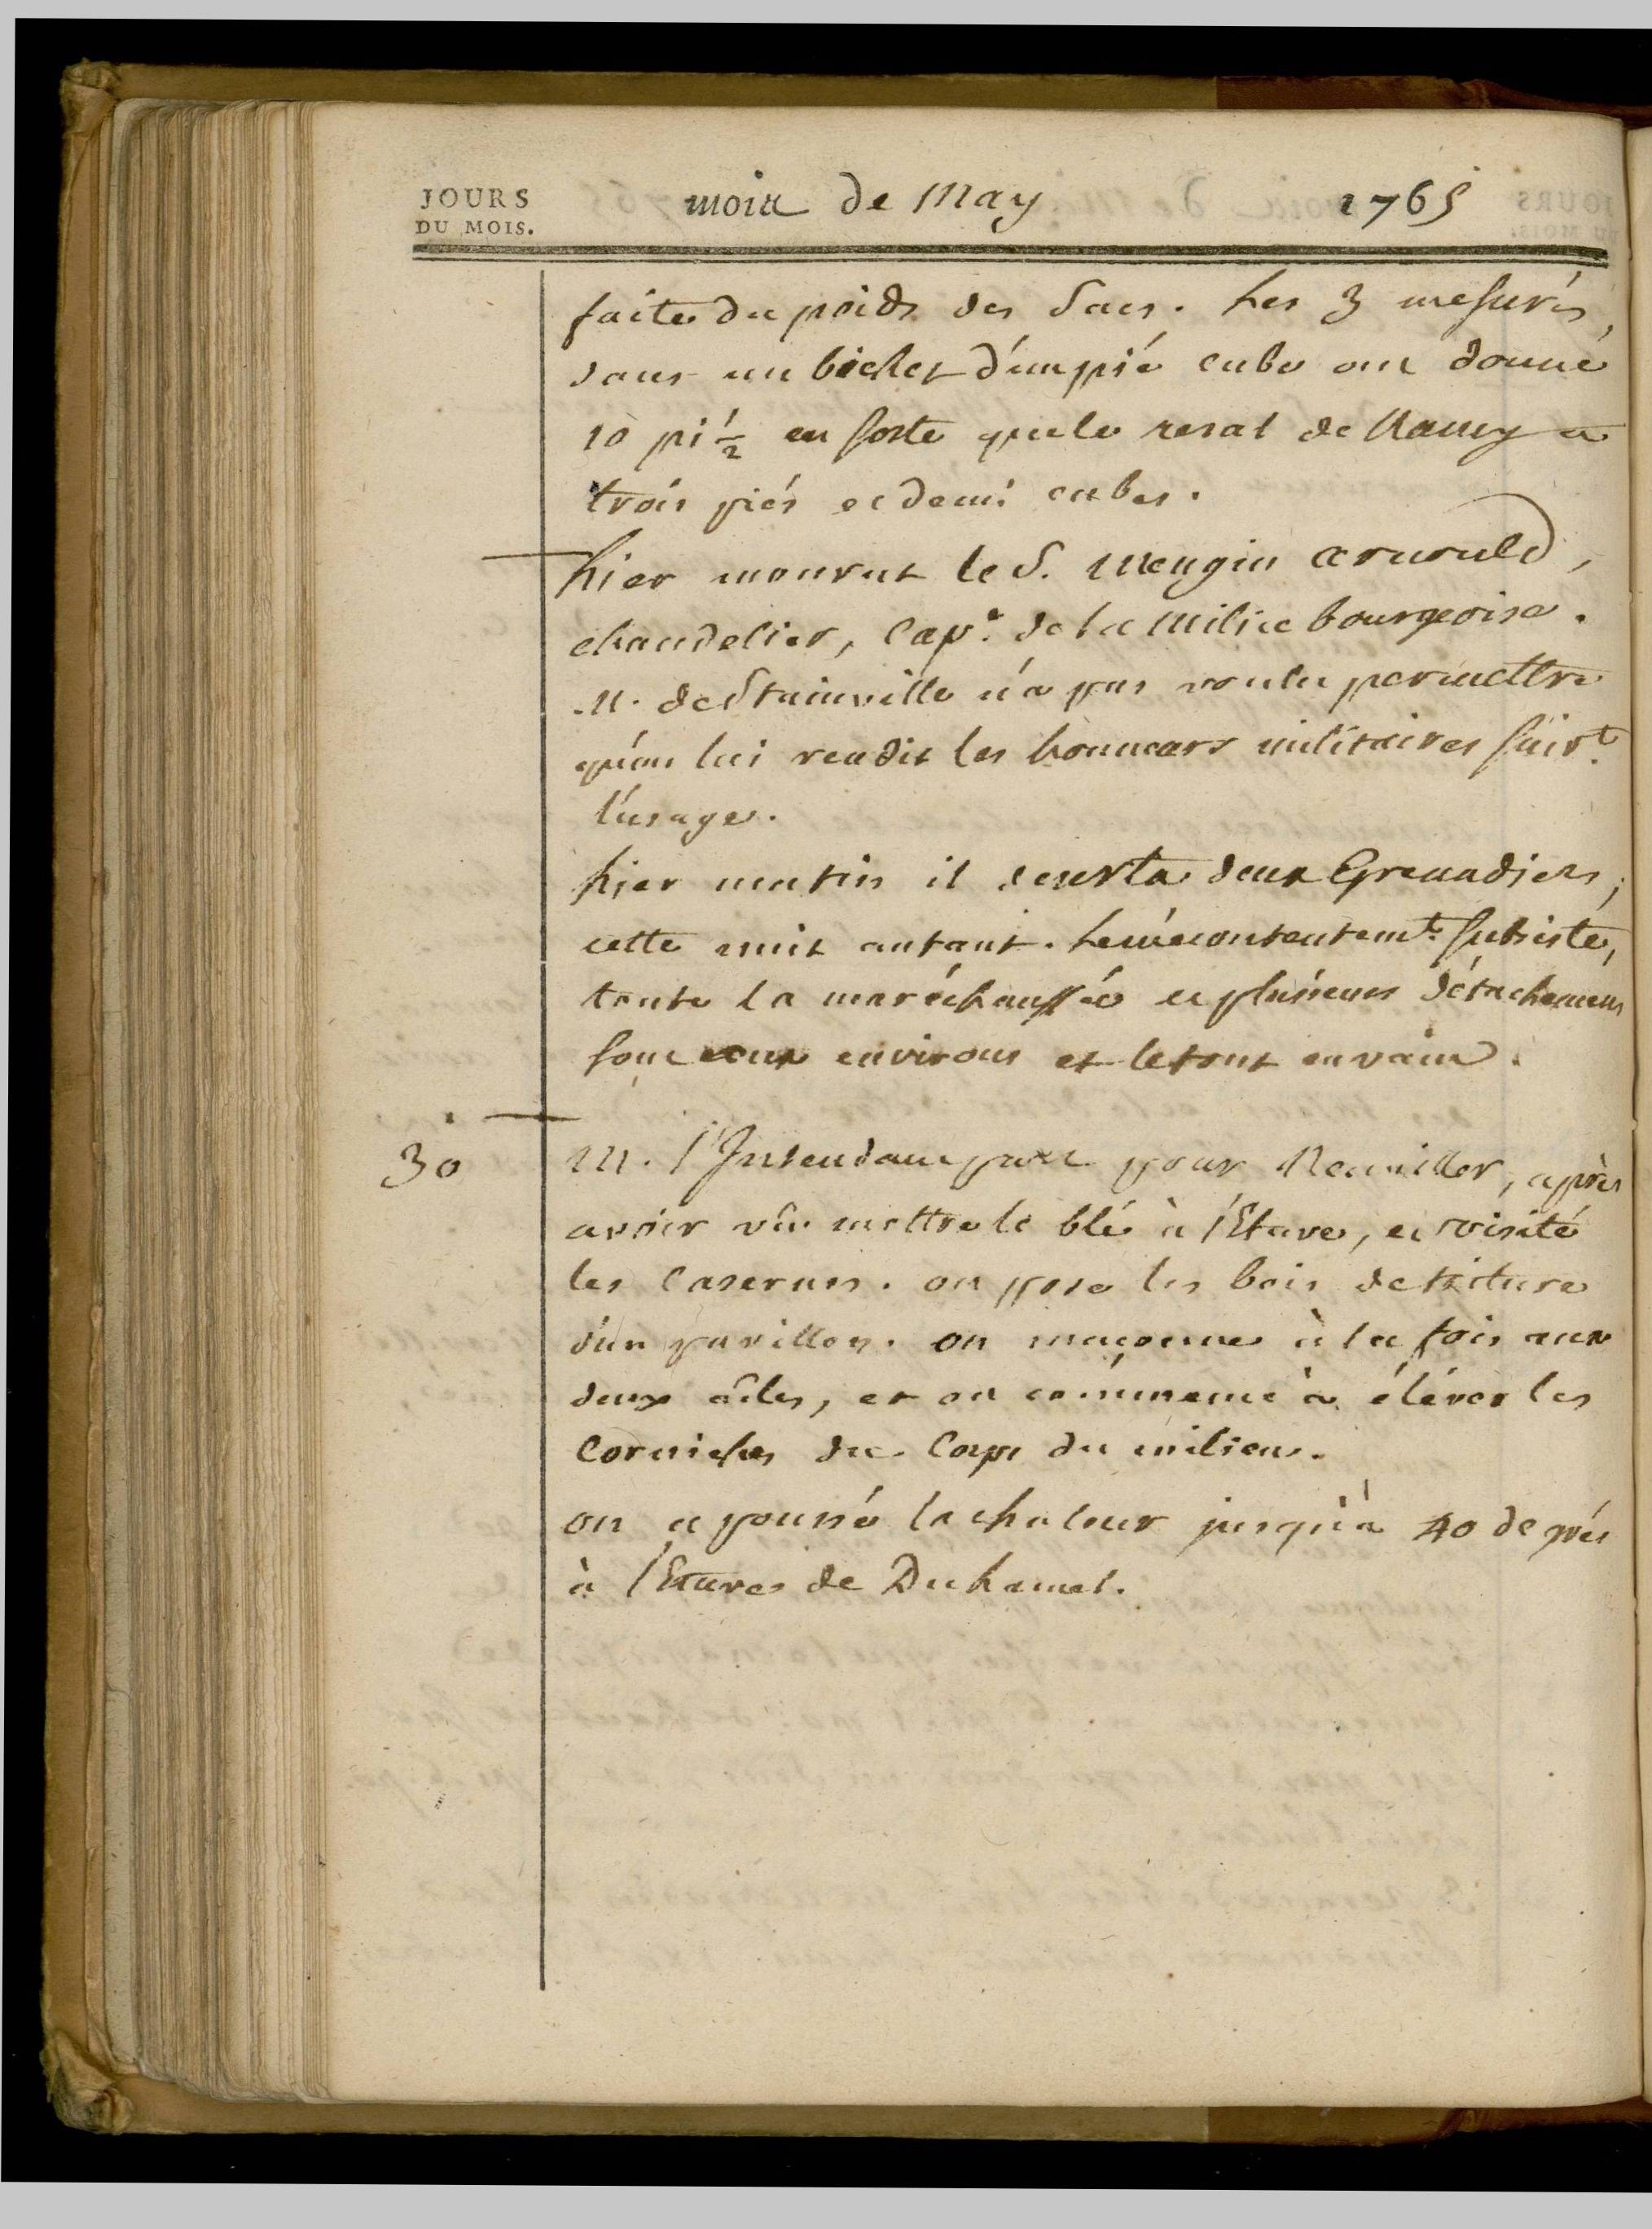 JOURS
DU MOIS.
mois de May 1765
faite du poids des Sacs. Les 3 mesurés,
dans un bichet d'un pié cube ont donné
10 pi 1/2 en sorte que le resal de Nancy a
trois piés et demi cubes.
hier mourut le S. Mengin arnould,
chandelier, Cap.e de la Milice bourgeoise.
M. de Stainville n'a pas voulu permettre
qu'on lui rendit les honneurs militaires suiv.t
l'usage.
hier matin il deserta deux Grenadiers,
cette nuit autant. le mécontentem.t subsiste,
toute la maréchaussée et plusieurs détachemens
sont aux environs et le tout en vain.
30
M. l'Intendant part pour Neuviller, après
avoir vû mettre le blé à l'Etuve, et visité
les Casernes. on pose les bois de toiture
d'un pavillon. on maçonne à la fois aux
deux aîles, et on commence à éléver les
Corniches du Corps du milieu.
on a poussé la chaleur jusqu'à 40 degrés
à l'Etuve de Duhamel.